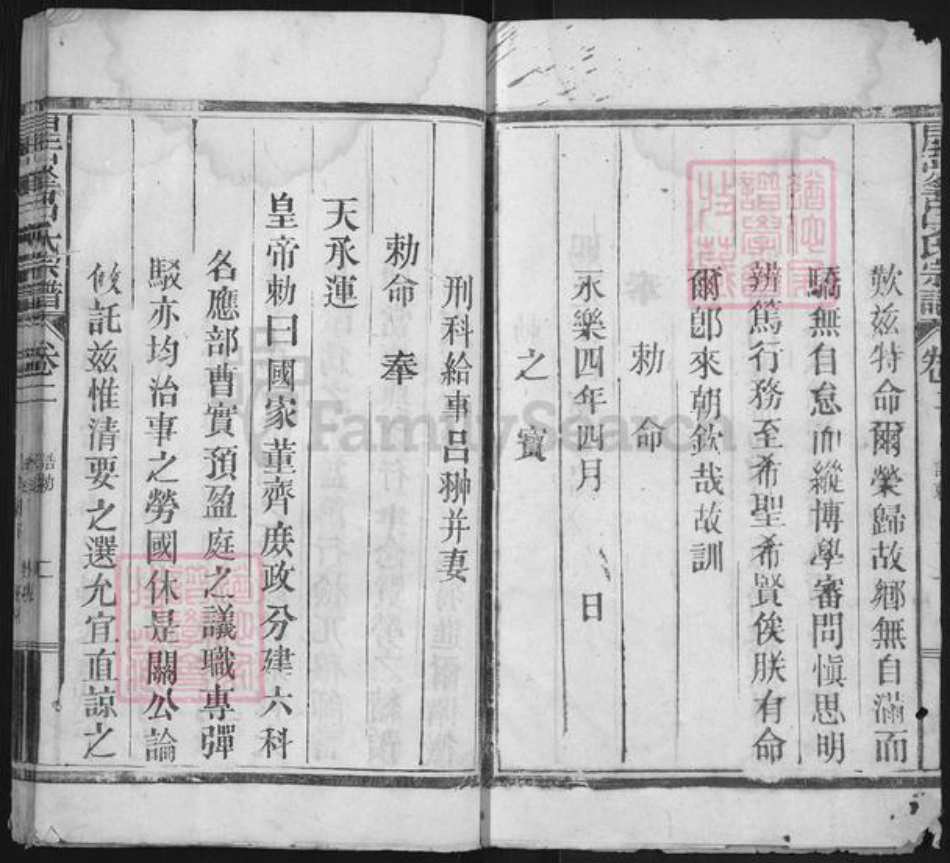 歎兹特命爾榮歸故鄉無自滿而
驕無自怠而縱博學審問慎思明
辨篤行務至希聖希賢俟朕有命
爾卽來朝欽哉故訓
勅命
永樂四年四月 日
之寶
刑科給事呂翀并妻
勅命 奉
天承運
皇帝勅曰國家董齊庶政分建六科
各應部曹實預盈庭之議職專彈
駁亦均治事之勞國休是關公論
攸託兹惟清要之選允宜直諒之
氏宗譜 卷二
FamilySearch